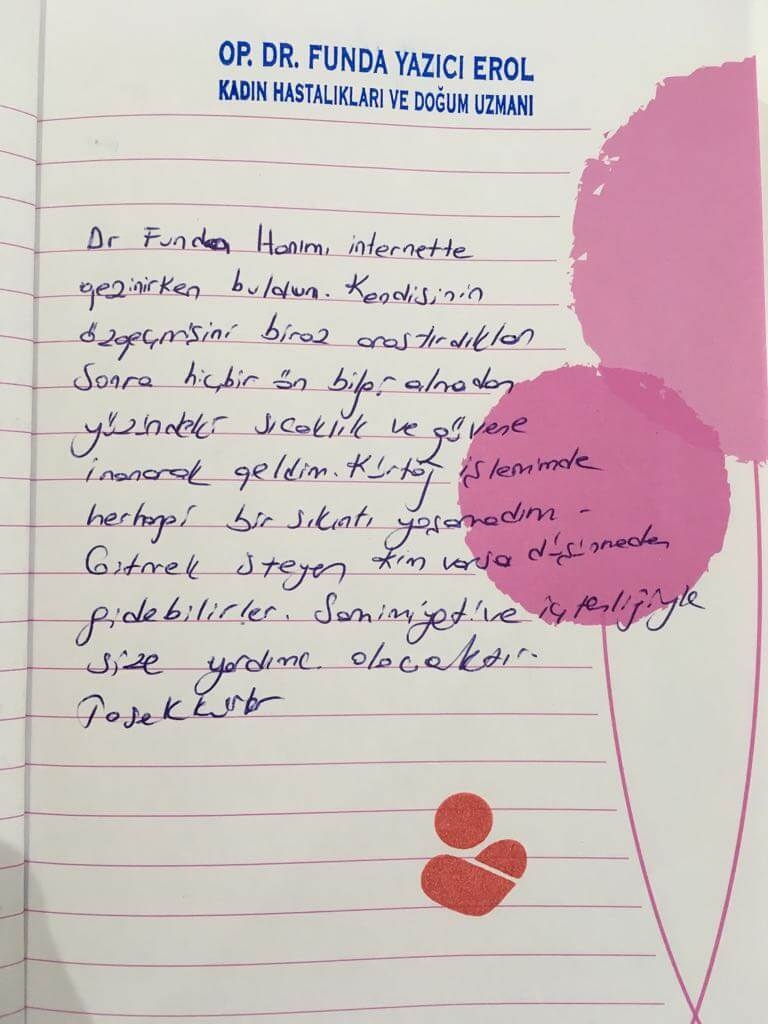 OP. DR. FUNDA YAZICI EROL
KADIN HASTALIKLARI VE DOĞUM UZMANI
Dr Funda Hanımı internette
gezinirken buldum. Kendisinin
özgeçmişini biraz araştırdıktan
sonra hiçbir ön bilgi almadan
yüzündeki sıcaklık ve güvene
inanarak geldim. Kürtaj işlemimde
herhangi bir sıkıntı yaşamadım -
Gitmek isteyen kim varsa düşünmeden
gidebilirler. Samimiyeti ve içtenliğiyle
size yardımcı olacaktır.
Teşekkürler